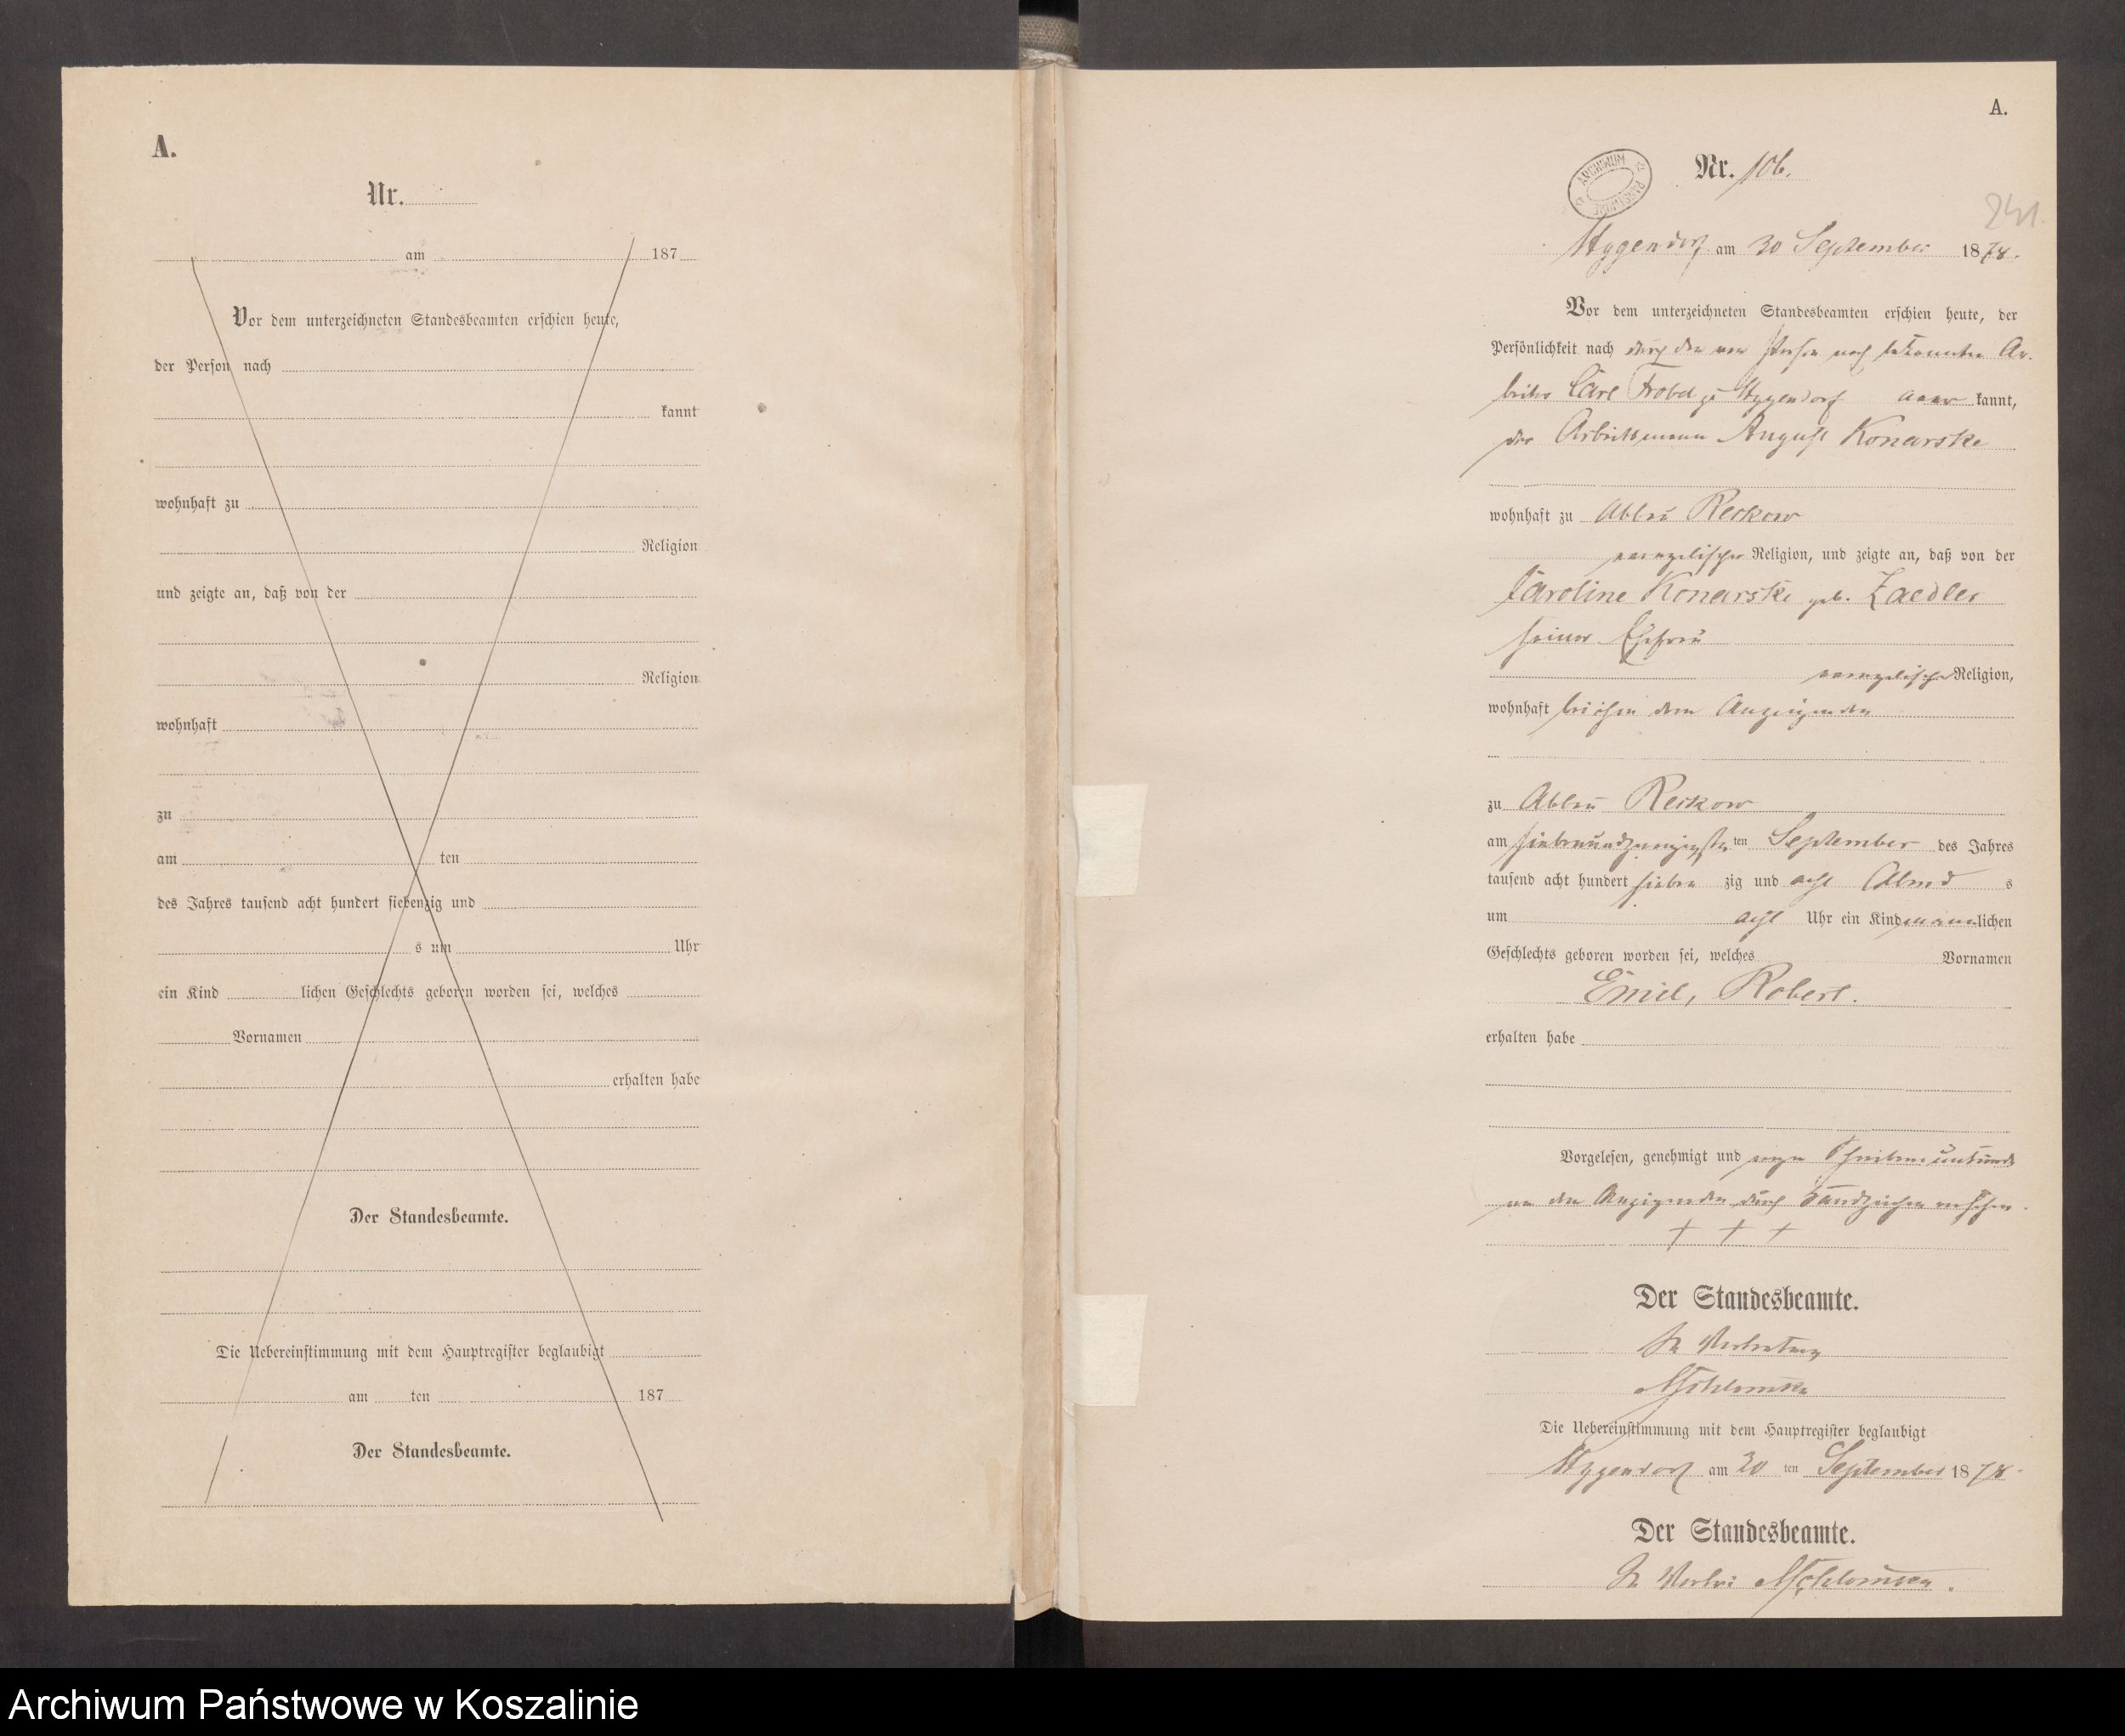 A.
Nr.
am 187
Vor dem unterzeichneten Standesbeamten erschien heute,
der Person nach
kannt
wohnhaft zu
Religion
und zeigte an, daß von der
Religion
wohnhaft
zu
am ten
des Jahres tausend acht hundert siebenzig und
s um Uhr
ein Kind lichen Geschlechts geboren worden sei, welches
Vornamen
erhalten habe
Der Standesbeamte.
Die Uebereinstimmung mit dem Hauptregister beglaubigt
am ten 187
Der Standesbeamte.
A.
ARCHIWUM PAŃSTWOWE
Nr. 106.
241.
am 30 September 1878.
Vor dem unterzeichneten Standesbeamten erschien heute, der
Persönlichkeit nach durch den von Person nach bekannten Ar-
beiter Carl zu aner kannt,
der Arbeitsmann August Konarske
wohnhaft zu Abbau Reckow
evangelischer Religion, und zeigte an, daß von der
Caroline Konarske geb. Zaedler
seiner Ehefrau
evangelischer Religion,
wohnhaft bei ihm dem Anzeigenden
zu Abbau Reckow
am siebenundzwanzigsten ten September des Jahres
tausend acht hundert sieben zig und acht Abend s
um acht Uhr ein Kind männ lichen
Geschlechts geboren worden sei, welches Vornamen
Emil, Robert.
erhalten habe
Vorgelesen, genehmigt und wegen Schreibensunkunde
von dem Anzeigenden durch Handzeichen versehen.
+ + +
Der Standesbeamte.
In Vertretung
Die Uebereinstimmung mit dem Hauptregister beglaubigt
am 30 ten September 1878.
Der Standesbeamte.
In Vertr:
Archiwum Państwowe w Koszalinie